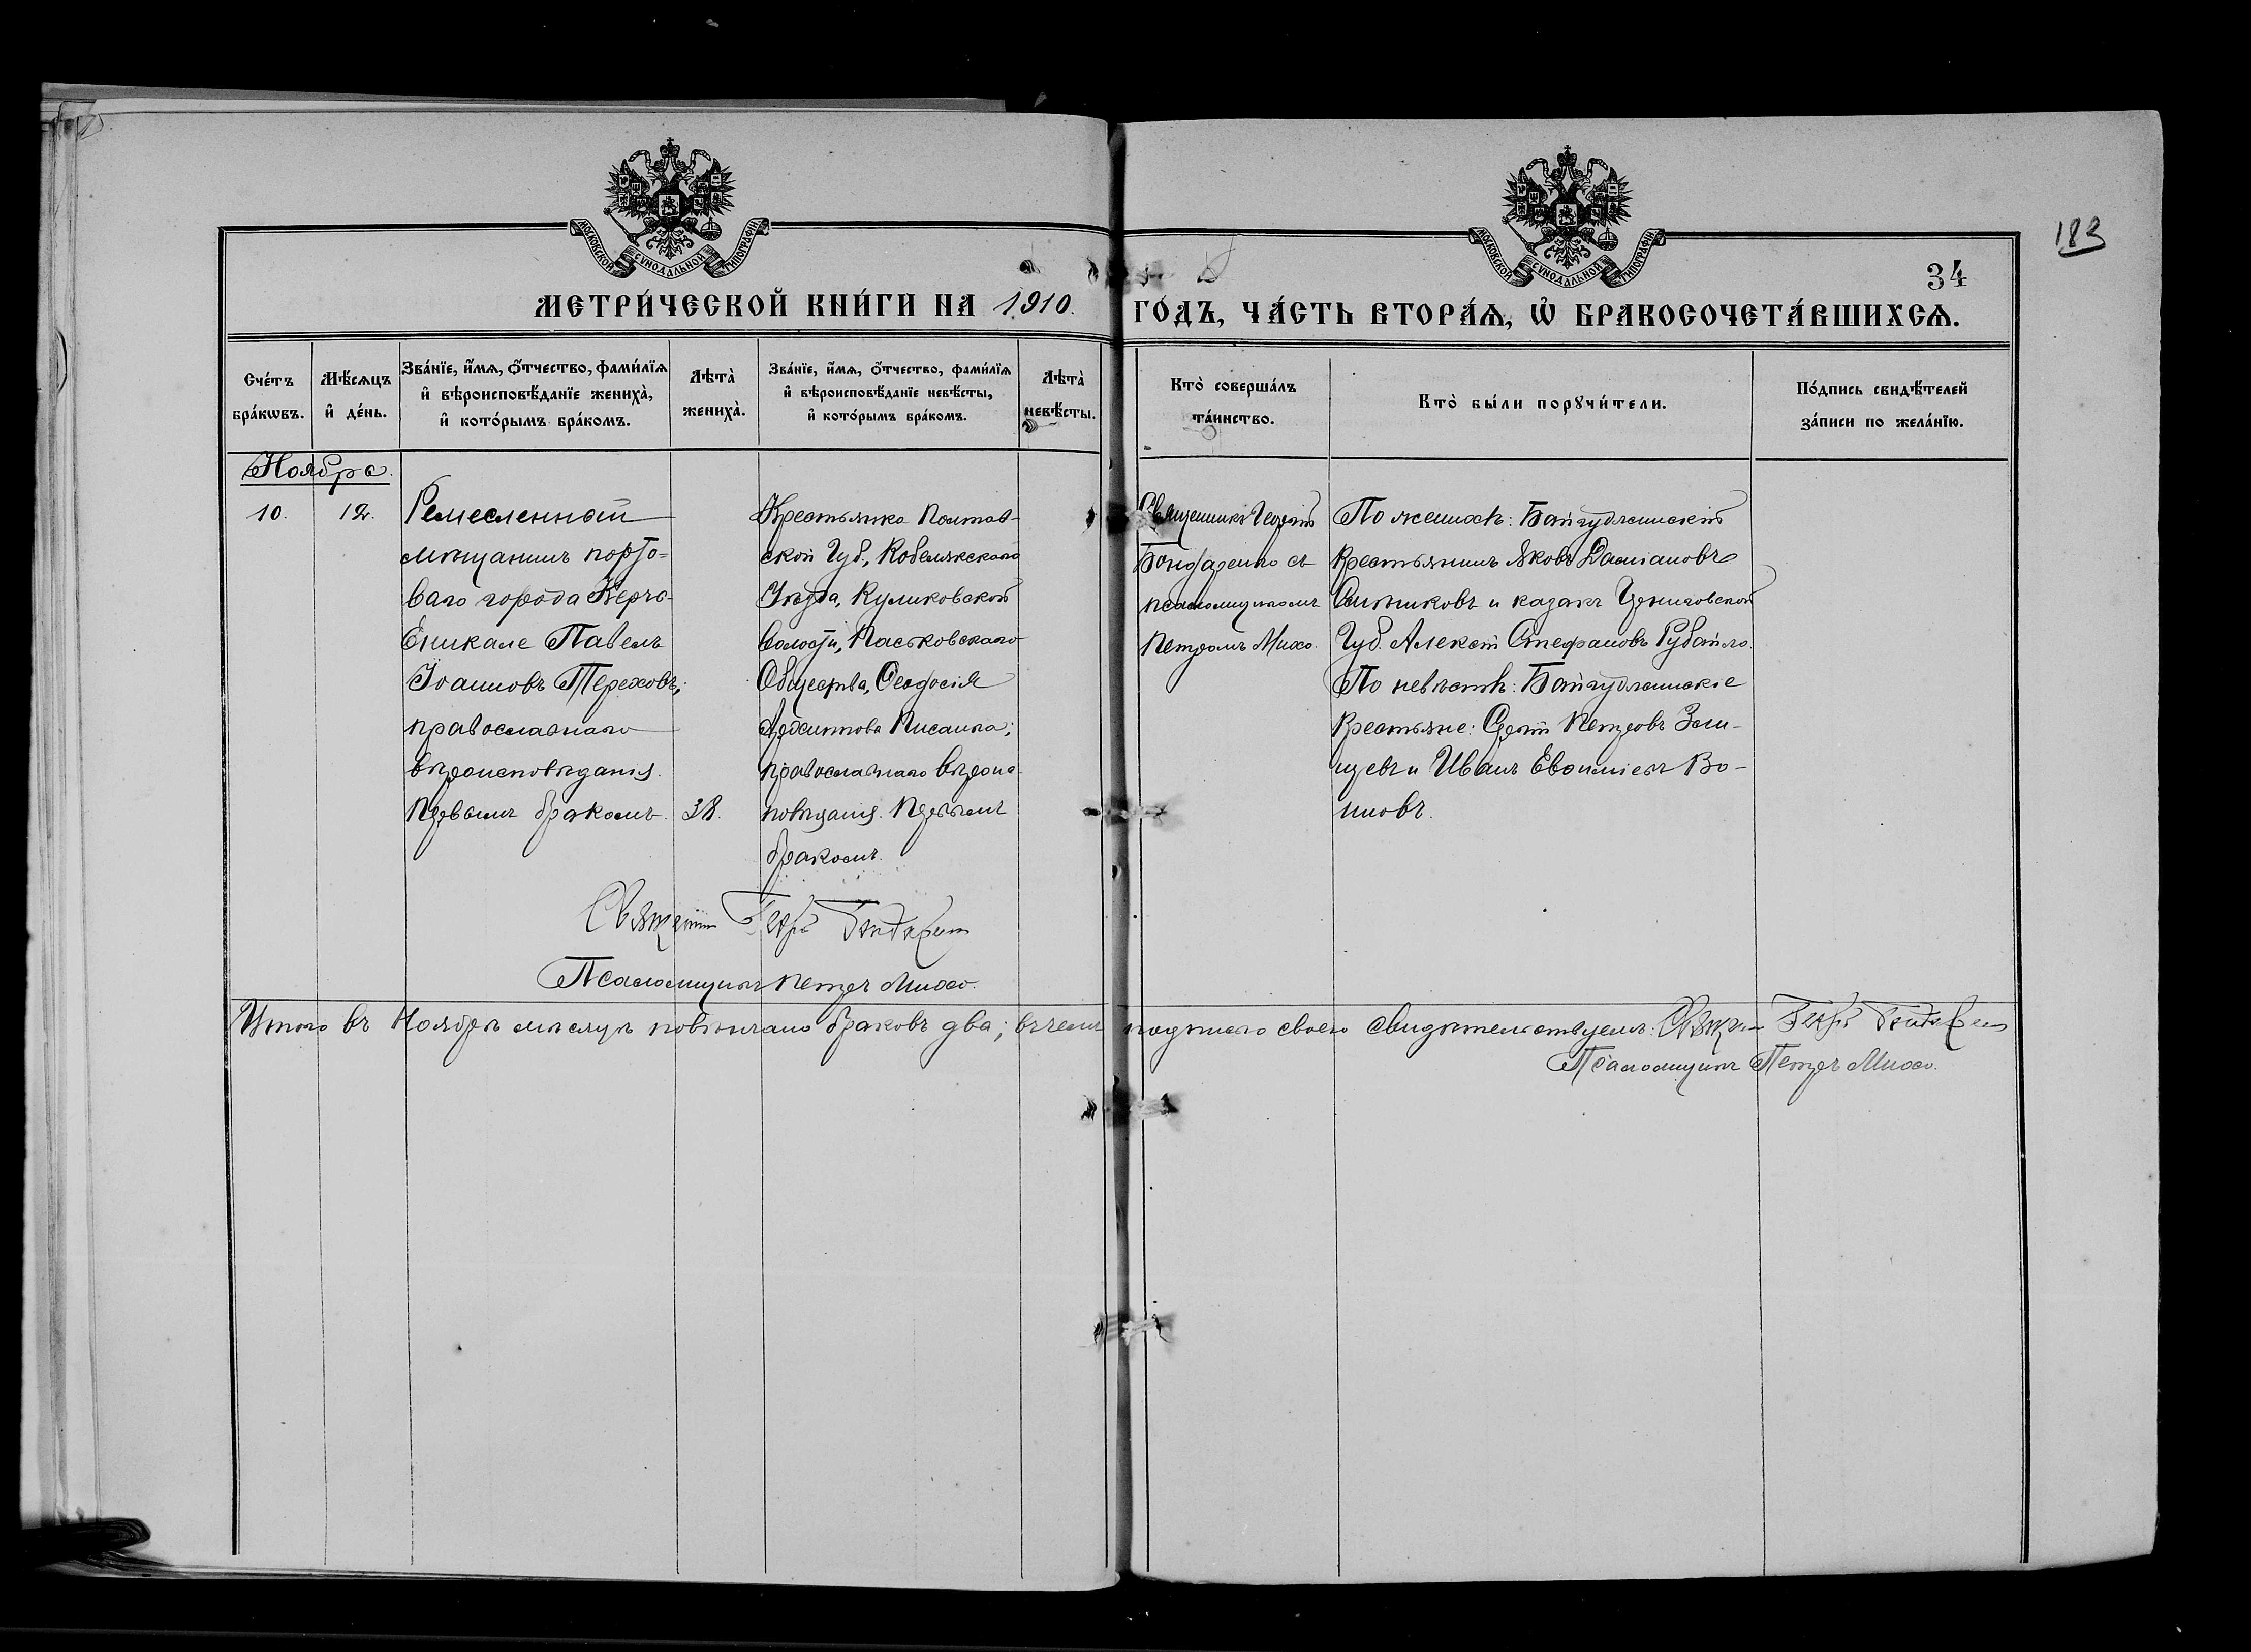 183
МОСКОВСКОЙ СѴНОДАЛЬНОЙ ТИПОГРАФІИ
МОСКОВСКОЙ СѴНОДАЛЬНОЙ ТИПОГРАФІИ
34
МЕТРИ́ЧЕСКОЙ КНИ́ГИ НА 1910.
ГО́ДЪ, ЧА́СТЬ ВТОРА́Ѧ, Ѡ҆ БРАКОСОЧЕТА́ВШИХСѦ.
Сче́тъ бра́кѡвъ.
Мѣ́сѧцъ и҆ де́нь.
Зва́нїе, и҆́мѧ, ѻ҆́тчество, фами́лїѧ и҆ вѣроисповѣ́данїе жениха̀, и҆ кото́рымъ бра́комъ.
Лѣта̀ жениха̀.
Зва́нїе, и҆́мѧ, ѻ҆́тчество, фами́лїѧ и҆ вѣроисповѣ́данїе невѣ́сты, и҆ кото́рымъ бра́комъ.
Лѣта̀ невѣ́сты.
Кто̀ соверша́лъ та́инство.
Кто̀ бы́ли порꙋчи́тели.
По́дпись свидѣ́телей за́писи по жела́нїю.
Ноября.
10.
12.
Ремесленный
мѣщанинъ порто-
ваго города Керчь-
Еникале Павелъ
Іоанновъ Тереховъ;
православнаго
вѣроисповѣданія.
Первымъ бракомъ.
38.
Крестьянка Полтав-
ской Губ., Кобелякскаго
Уѣзда, Куликовской
волости, Паськовскаго
Общества, Ѳеодосія
Писанка;
православнаго вѣроис
повѣданія. Первымъ
бракомъ.
Священникъ Георгій
Бондаренко съ
псаломщикомъ
Петромъ Михо.
По женихѣ:
крестьянинъ Яковъ Даміановъ
Ситниковъ и казакъ Черниговской
Губ. Алексѣй Стефановъ Рубайло.
По невѣстѣ:
крестьяне: Сергѣй Петровъ Зай-
цевъ и Иванъ Евфиміевъ Во-
иновъ.
Священникъ Георгій Бондаренко
Псаломщикъ Петръ Михо.
Итого въ Ноябрѣ мѣсяцѣ повѣнчано браковъ два; въ чемъ подписью своею свидѣтельствуемъ: Священникъ Георгій Бондаренко
Псаломщикъ Петръ Михо.